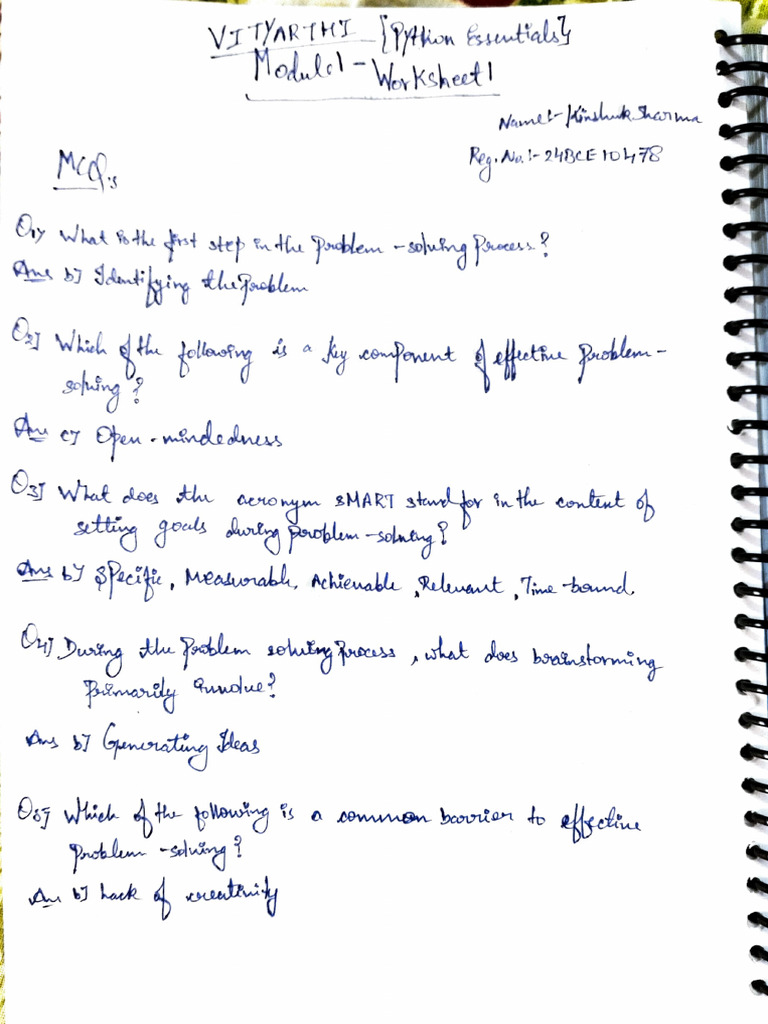 VITYARTHI [Python Essentials]
Module 1 - Worksheet 1
Name:- Kinshuk Sharma
Reg. No. :- 24BCE10478
MCQ.s
Q1] What is the first step in the Problem - solving Process?
Ans b] Identifying the Problem
Q2] Which of the following is a key component of effective Problem -
solving?
Ans c] Open - mindedness
Q3] What does the acronym SMART stand for in the content of
setting goals during problem - solving?
Ans b] Specific, Measurable, Achievable, Relevant, Time-bound.
Q4] During the Problem solving Process, what does brainstorming
Primarily
Ans b] Generating Ideas
Q5] Which of the following is a common barrier to effective
Problem - solving?
Ans b] Lack of creativity